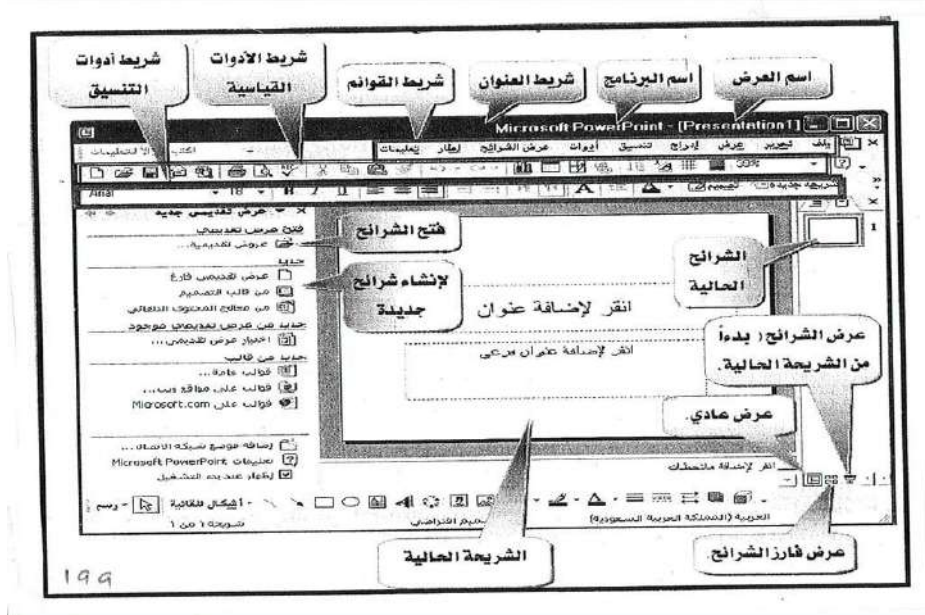 شريط أدوات
التنسيق
شريط الأدوات
القياسية
شريط القوائم
شريط العنوان
اسم البرنامج
اسم العرض
Microsoft PowerPoint - [Presentation1]
ملف تحرير عرض إدراج تنسيق أدوات عرض الشرائح إطار تعليمات
30%
Arial 18 B I U
تصميم شريحة جديدة
عرض تقديمي جديد
فتح عرض تقديمي
عروض تقديمية...
جديد
عرض تقديمي فارغ
من قالب التصميم
من معالج المحتوى التلقائي
جديد من عرض تقديمي موجود
اختيار عرض تقديمي...
جديد من قالب
قوالب عامة...
قوالب على مواقع ويب...
قوالب على Microsoft.com
إضافة موضع شبكة الاتصال...
تعليمات Microsoft PowerPoint
إظهار عند بدء التشغيل
فتح الشرائح
لإنشاء شرائح
جديدة
انقر لإضافة عنوان
انقر لإضافة عنوان فرعي
الشرائح
الحالية
1
عرض الشرائح ( بدءاً
من الشريحة الحالية.
عرض عادي.
انقر لإضافة ملاحظات
رسم
أشكال تلقائية
شريحة ١ من ١
تصميم افتراضي
العربية (المملكة العربية السعودية)
الشريحة الحالية
عرض فارز الشرائح.
199